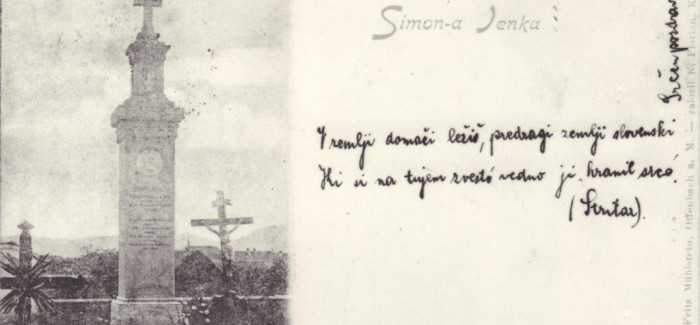 Simon-a Jenka
V zemlji domači ležiš, predragi zemlji slovenski
Ki si na tujem zvestó vedno ji hranil srcé.
(Stritar).
Srčen pozdrav
Fritz Mühlstein, Offenbach a. M.